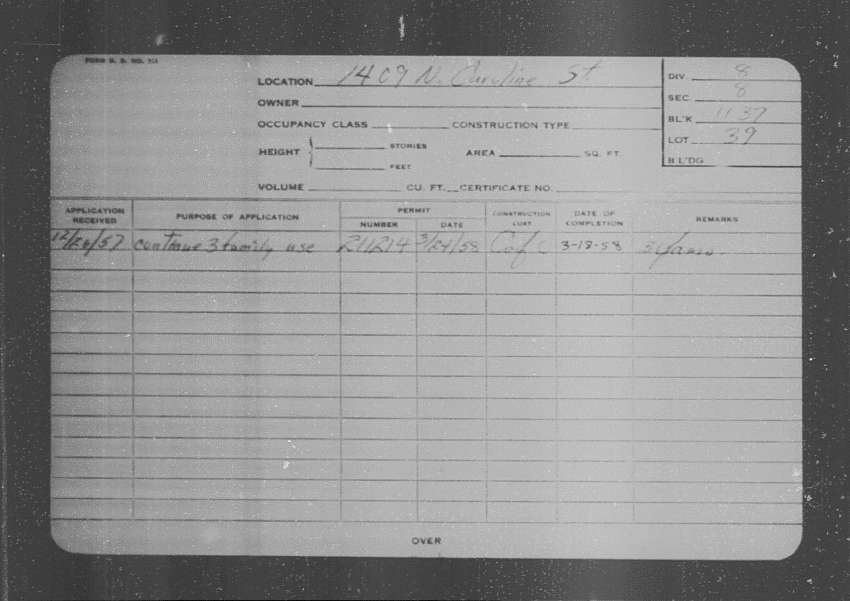 FORM B. D. NO.
LOCATION 1409 N. Caroline St. DIV. 8
OWNER SEC 8
OCCUPANCY CLASS CONSTRUCTION TYPE BL'K 1137
HEIGHT STORIES AREA SQ. FT LOT 39
FEET BL'DG
VOLUME CU. FT. CERTIFICATE NO.
APPLICATION RECEIVED PURPOSE OF APPLICATION PERMIT NUMBER DATE CONSTRUCTION COST DATE OF COMPLETION REMARKS
12/26/57 continue 3 family use 211214 3/24/58 C of C 3-18-58 3 fams.
OVER